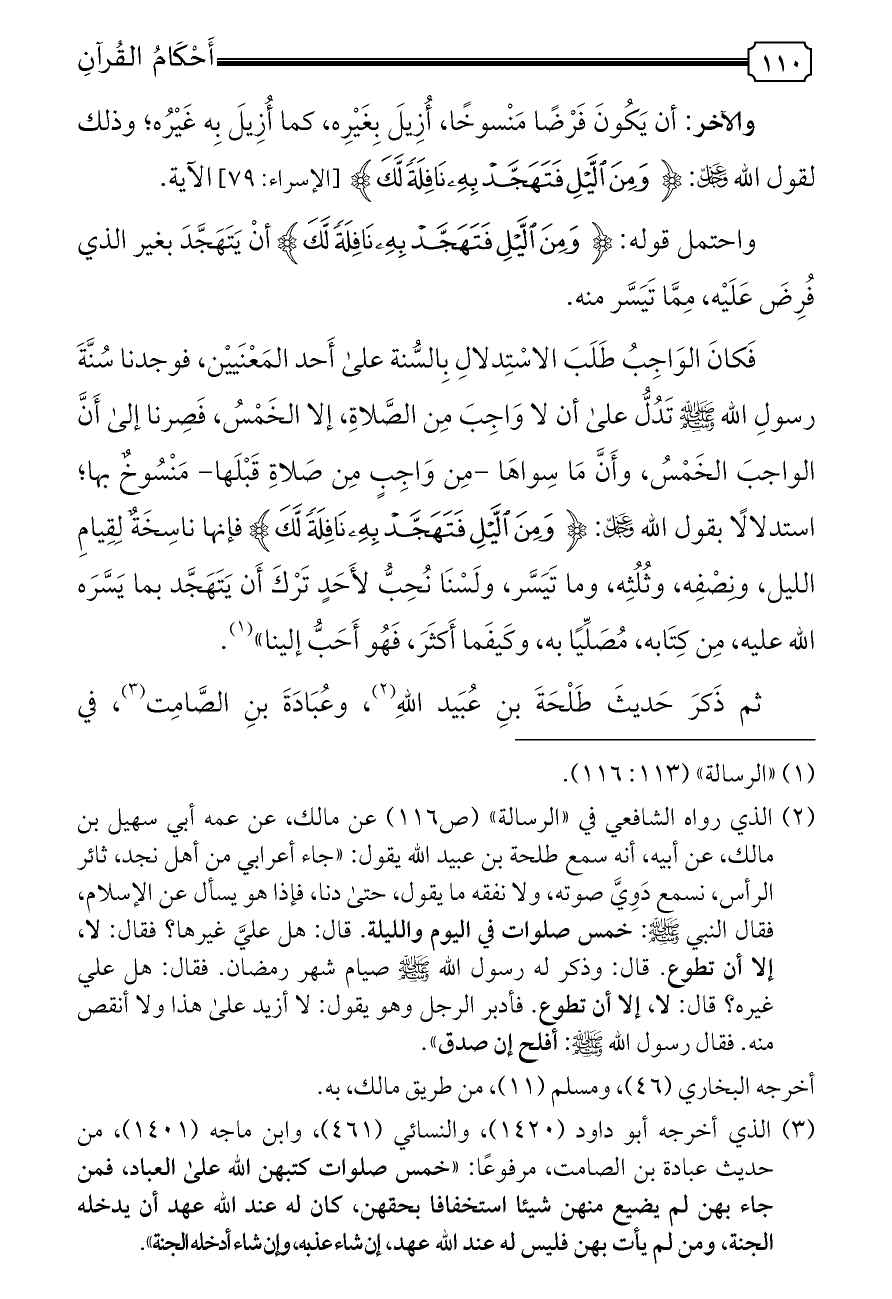 ١١٠ أَحْكَامُ القُرآنِ
والآخر: أن يَكُونَ فَرْضًا مَنْسوخًا، أُزِيلَ بِغَيْرِه، كما أُزِيلَ بِه غَيْرُه؛ وذلك
لقول الله عز وجل: ﴿وَمِنَ ٱلَّيْلِ فَتَهَجَّدْ بِهِۦ نَافِلَةً لَّكَ﴾ [الإسراء: ٧٩] الآية.
واحتمل قوله: ﴿وَمِنَ ٱلَّيْلِ فَتَهَجَّدْ بِهِۦ نَافِلَةً لَّكَ﴾ أنْ يَتَهَجَّدَ بغير الذي
فُرِضَ عَلَيْه، مِمَّا تَيَسَّر منه.
فَكانَ الوَاجِبُ طَلَبَ الاسْتِدلالِ بِالسُّنة علىٰ أَحد المَعْنَيَيْن، فوجدنا سُنَّةَ
رسولِ الله ﷺ تَدُلُّ علىٰ أن لا وَاجِبَ مِن الصَّلاةِ، إلا الخَمْسُ، فَصِرنا إلىٰ أَنَّ
الواجبَ الخَمْسُ، وأَنَّ مَا سِواهَا -مِن وَاجِبٍ مِن صَلاةٍ قَبْلَها- مَنْسُوخٌ بها؛
استدلالًا بقول الله عز وجل: ﴿وَمِنَ ٱلَّيْلِ فَتَهَجَّدْ بِهِۦ نَافِلَةً لَّكَ﴾ فإنها ناسخَةٌ لِقِيامِ
الليل، ونِصْفِه، وثُلُثِه، وما تَيَسَّر، ولَسْنَا نُحِبُّ لأَحَدٍ تَرْكَ أَن يَتَهَجَّد بما يَسَّرَه
الله عليه، مِن كِتَابه، مُصَلِّيًا به، وكَيفَما أَكثَرَ، فَهُو أَحَبُّ إلينا»(١).
ثم ذَكَرَ حَديثَ طَلْحَةَ بنِ عُبَيد اللهِ(٢)، وعُبَادَةَ بنِ الصَّامِت(٣)، في
(١) «الرسالة» (١١٣: ١١٦).
(٢) الذي رواه الشافعي في «الرسالة» (ص١١٦) عن مالك، عن عمه أبي سهيل بن
مالك، عن أبيه، أنه سمع طلحة بن عبيد الله يقول: «جاء أعرابي من أهل نجد، ثائر
الرأس، نسمع دَوِيَّ صوته، ولا نفقه ما يقول، حتىٰ دنا، فإذا هو يسأل عن الإسلام،
فقال النبي ﷺ: خمس صلوات في اليوم والليلة. قال: هل عليَّ غيرها؟ فقال: لا،
إلا أن تطوع. قال: وذكر له رسول الله ﷺ صيام شهر رمضان. فقال: هل علي
غيره؟ قال: لا، إلا أن تطوع. فأدبر الرجل وهو يقول: لا أزيد علىٰ هذا ولا أنقص
منه. فقال رسول الله ﷺ: أفلح إن صدق».
أخرجه البخاري (٤٦)، ومسلم (١١)، من طريق مالك، به.
(٣) الذي أخرجه أبو داود (١٤٢٠)، والنسائي (٤٦١)، وابن ماجه (١٤٠١)، من
حديث عبادة بن الصامت، مرفوعًا: «خمس صلوات كتبهن الله علىٰ العباد، فمن
جاء بهن لم يضيع منهن شيئا استخفافا بحقهن، كان له عند الله عهد أن يدخله
الجنة، ومن لم يأت بهن فليس له عند الله عهد، إن شاء عذبه، وإن شاء أدخله الجنة».